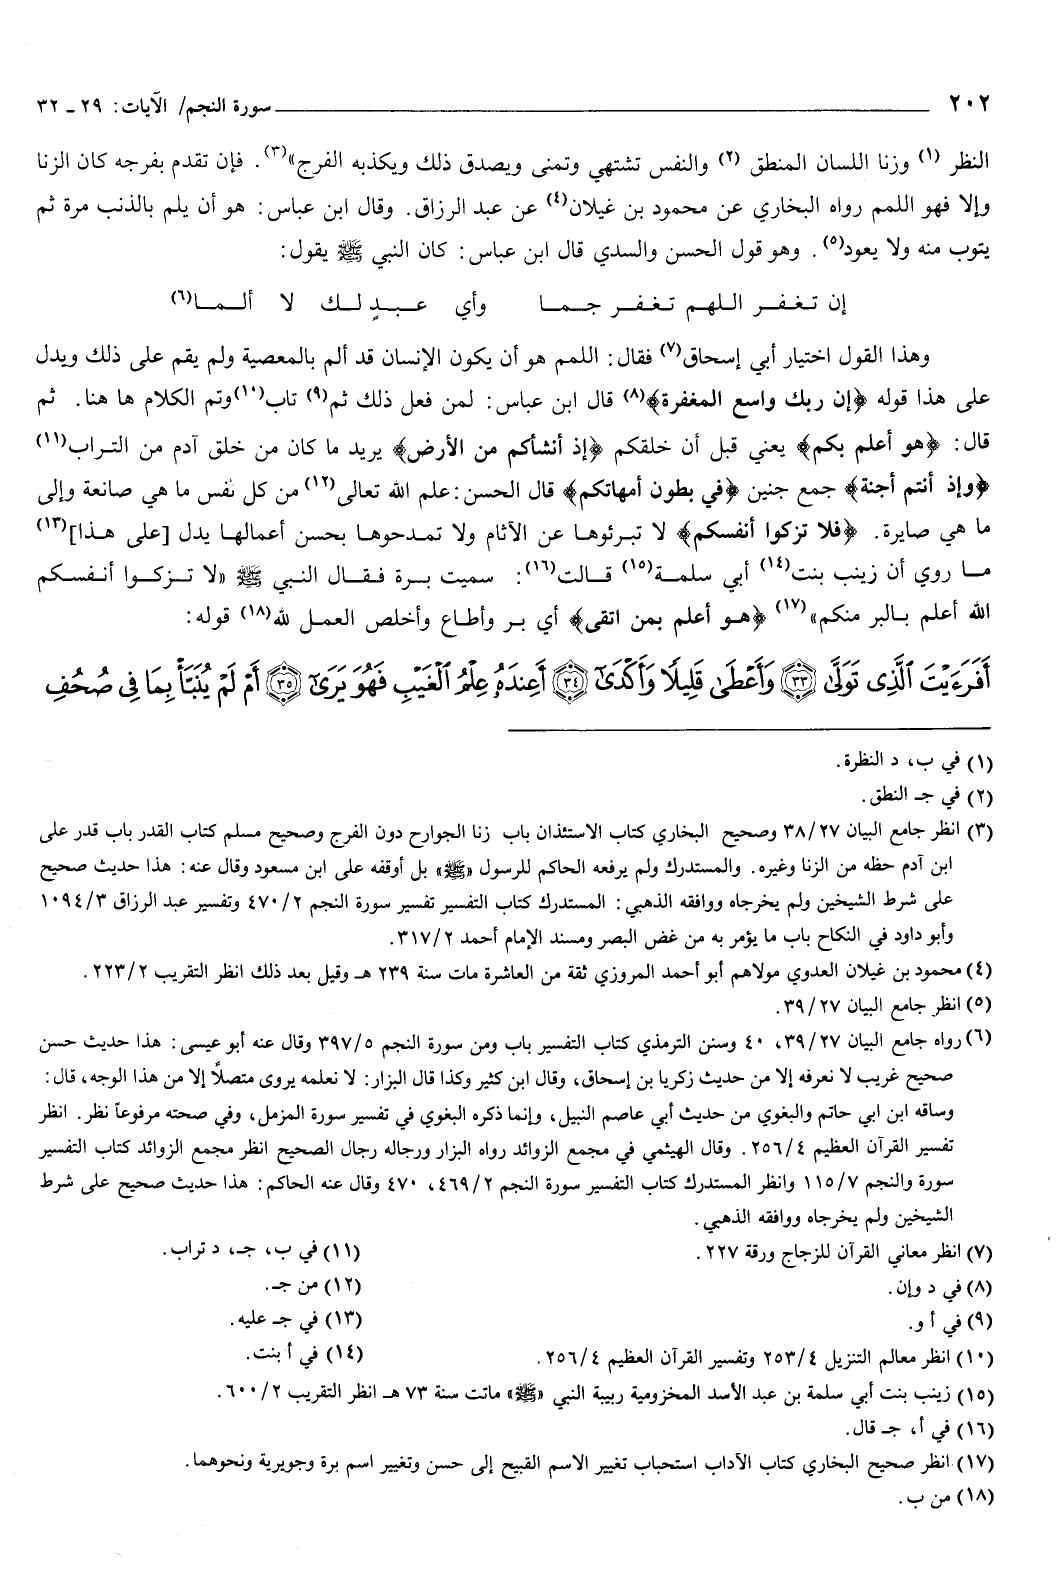 ٢٠٢ سورة النجم/ الآيات: ٢٩ ـ ٣٢
النظر (١) وزنا اللسان المنطق (٢) والنفس تشتهي وتمنى ويصدق ذلك ويكذبه الفرج»(٣). فإن تقدم بفرجه كان الزنا
وإلا فهو اللمم رواه البخاري عن محمود بن غيلان(٤) عن عبد الرزاق. وقال ابن عباس: هو أن يلم بالذنب مرة ثم
يتوب منه ولا يعود(٥). وهو قول الحسن والسدي قال ابن عباس: كان النبي ﷺ يقول:
إن تـغـفـر اللهم تـغـفـر جـمـا وأي عـبـدٍ لـك لا ألـمـا(٦)
وهذا القول اختيار أبي إسحاق(٧) فقال: اللمم هو أن يكون الإنسان قد ألم بالمعصية ولم يقم على ذلك ويدل
على هذا قوله ﴿إن ربك واسع المغفرة﴾(٨) قال ابن عباس: لمن فعل ذلك ثم(٩) تاب(١٠) وتم الكلام ها هنا. ثم
قال: ﴿هو أعلم بكم﴾ يعني قبل أن خلقكم ﴿إذ أنشأكم من الأرض﴾ يريد ما كان من خلق آدم من التراب(١١)
﴿وإذ أنتم أجنة﴾ جمع جنين ﴿في بطون أمهاتكم﴾ قال الحسن: علم الله تعالى(١٢) من كل نفس ما هي صانعة وإلى
ما هي صايرة. ﴿فلا تزكوا أنفسكم﴾ لا تبرئوها عن الآثام ولا تمدحوها بحسن أعمالها يدل [على هذا](١٣)
ما روي أن زينب بنت(١٤) أبي سلمة(١٥) قالت(١٦): سميت برة فقال النبي ﷺ «لا تزكوا أنفسكم
الله أعلم بالبر منكم»(١٧) ﴿هو أعلم بمن اتقى﴾ أي بر وأطاع وأخلص العمل لله(١٨) قوله:
أَفَرَءَيْتَ ٱلَّذِى تَوَلَّىٰ ٣٣ وَأَعْطَىٰ قَلِيلًا وَأَكْدَىٰٓ ٣٤ أَعِندَهُۥ عِلْمُ ٱلْغَيْبِ فَهُوَ يَرَىٰٓ ٣٥ أَمْ لَمْ يُنَبَّأْ بِمَا فِى صُحُفِ
(١) في ب، د النظرة.
(٢) في جـ النطق.
(٣) انظر جامع البيان ٣٨/٢٧ وصحيح البخاري كتاب الاستئذان باب زنا الجوارح دون الفرج وصحيح مسلم كتاب القدر باب قدر على
ابن آدم حظه من الزنا وغيره. والمستدرك ولم يرفعه الحاكم للرسول «ﷺ» بل أوقفه على ابن مسعود وقال عنه: هذا حديث صحيح
على شرط الشيخين ولم يخرجاه ووافقه الذهبي: المستدرك كتاب التفسير تفسير سورة النجم ٤٧٠/٢ وتفسير عبد الرزاق ١٠٩٤/٣
وأبو داود في النكاح باب ما يؤمر به من غض البصر ومسند الإمام أحمد ٣١٧/٢.
(٤) محمود بن غيلان العدوي مولاهم أبو أحمد المروزي ثقة من العاشرة مات سنة ٢٣٩ هـ وقيل بعد ذلك انظر التقريب ٢٢٣/٢.
(٥) انظر جامع البيان ٣٩/٢٧.
(٦) رواه جامع البيان ٣٩/٢٧، ٤٠ وسنن الترمذي كتاب التفسير باب ومن سورة النجم ٣٩٧/٥ وقال عنه أبو عيسى: هذا حديث حسن
صحيح غريب لا نعرفه إلا من حديث زكريا بن إسحاق، وقال ابن كثير وكذا قال البزار: لا نعلمه يروى متصلاً إلا من هذا الوجه، قال:
وساقه ابن ابي حاتم والبغوي من حديث أبي عاصم النبيل، وإنما ذكره البغوي في تفسير سورة المزمل، وفي صحته مرفوعاً نظر. انظر
تفسير القرآن العظيم ٢٥٦/٤. وقال الهيثمي في مجمع الزوائد رواه البزار ورجاله رجال الصحيح انظر مجمع الزوائد كتاب التفسير
سورة والنجم ١١٥/٧ وانظر المستدرك كتاب التفسير سورة النجم ٤٦٩/٢، ٤٧٠ وقال عنه الحاكم: هذا حديث صحيح على شرط
الشيخين ولم يخرجاه ووافقه الذهبي.
(٧) انظر معاني القرآن للزجاج ورقة ٢٢٧. (١١) في ب، جـ، د تراب.
(٨) في د وإن. (١٢) من جـ.
(٩) في أ و. (١٣) في جـ عليه.
(١٠) انظر معالم التنزيل ٢٥٣/٤ وتفسير القرآن العظيم ٢٥٦/٤. (١٤) في أ بنت.
(١٥) زينب بنت أبي سلمة بن عبد الأسد المخزومية ربيبة النبي «ﷺ» ماتت سنة ٧٣ هـ انظر التقريب ٦٠٠/٢.
(١٦) في أ، جـ قال.
(١٧) انظر صحيح البخاري كتاب الآداب استحباب تغيير الاسم القبيح إلى حسن وتغيير اسم برة وجويرية ونحوهما.
(١٨) من ب.